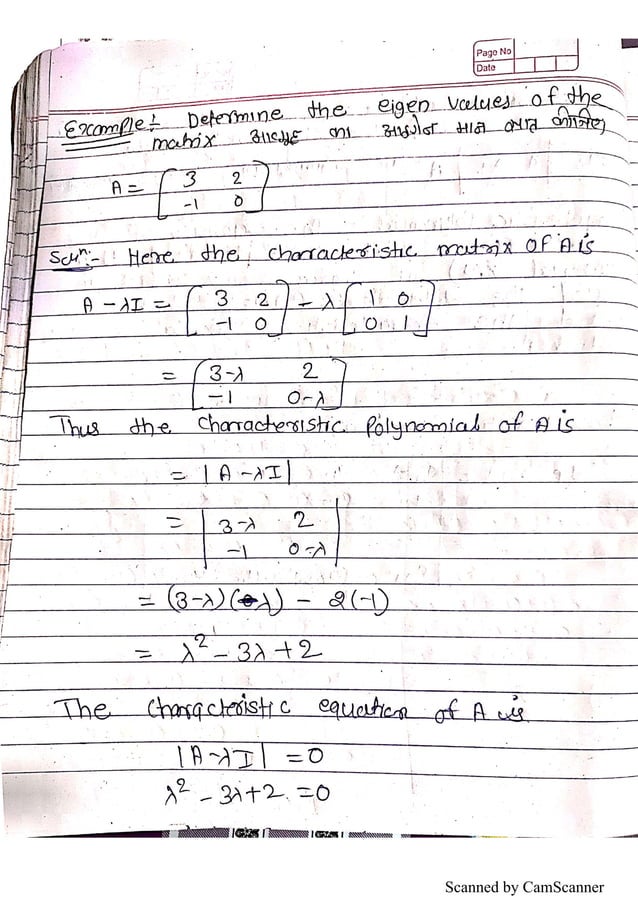 Page No
Date
Example:- Determine the eigen values of the
matrix आव्यूह का आइगेन मान ज्ञात कीजिए
A = [3 2
-1 0]
Soln:- Here the characteristic matrix of A is
A - λI = [3 2 - λ [1 0
-1 0] 0 1]
= [3-λ 2
-1 0-λ]
Thus the characteristic polynomial of A is
= |A-λI|
= |3-λ 2
-1 0-λ|
= (3-λ)(-λ) - 2(-1)
= λ² - 3λ + 2
The characteristic equation of A is
|A-λI| = 0
λ² - 3λ + 2 = 0
Scanned by CamScanner